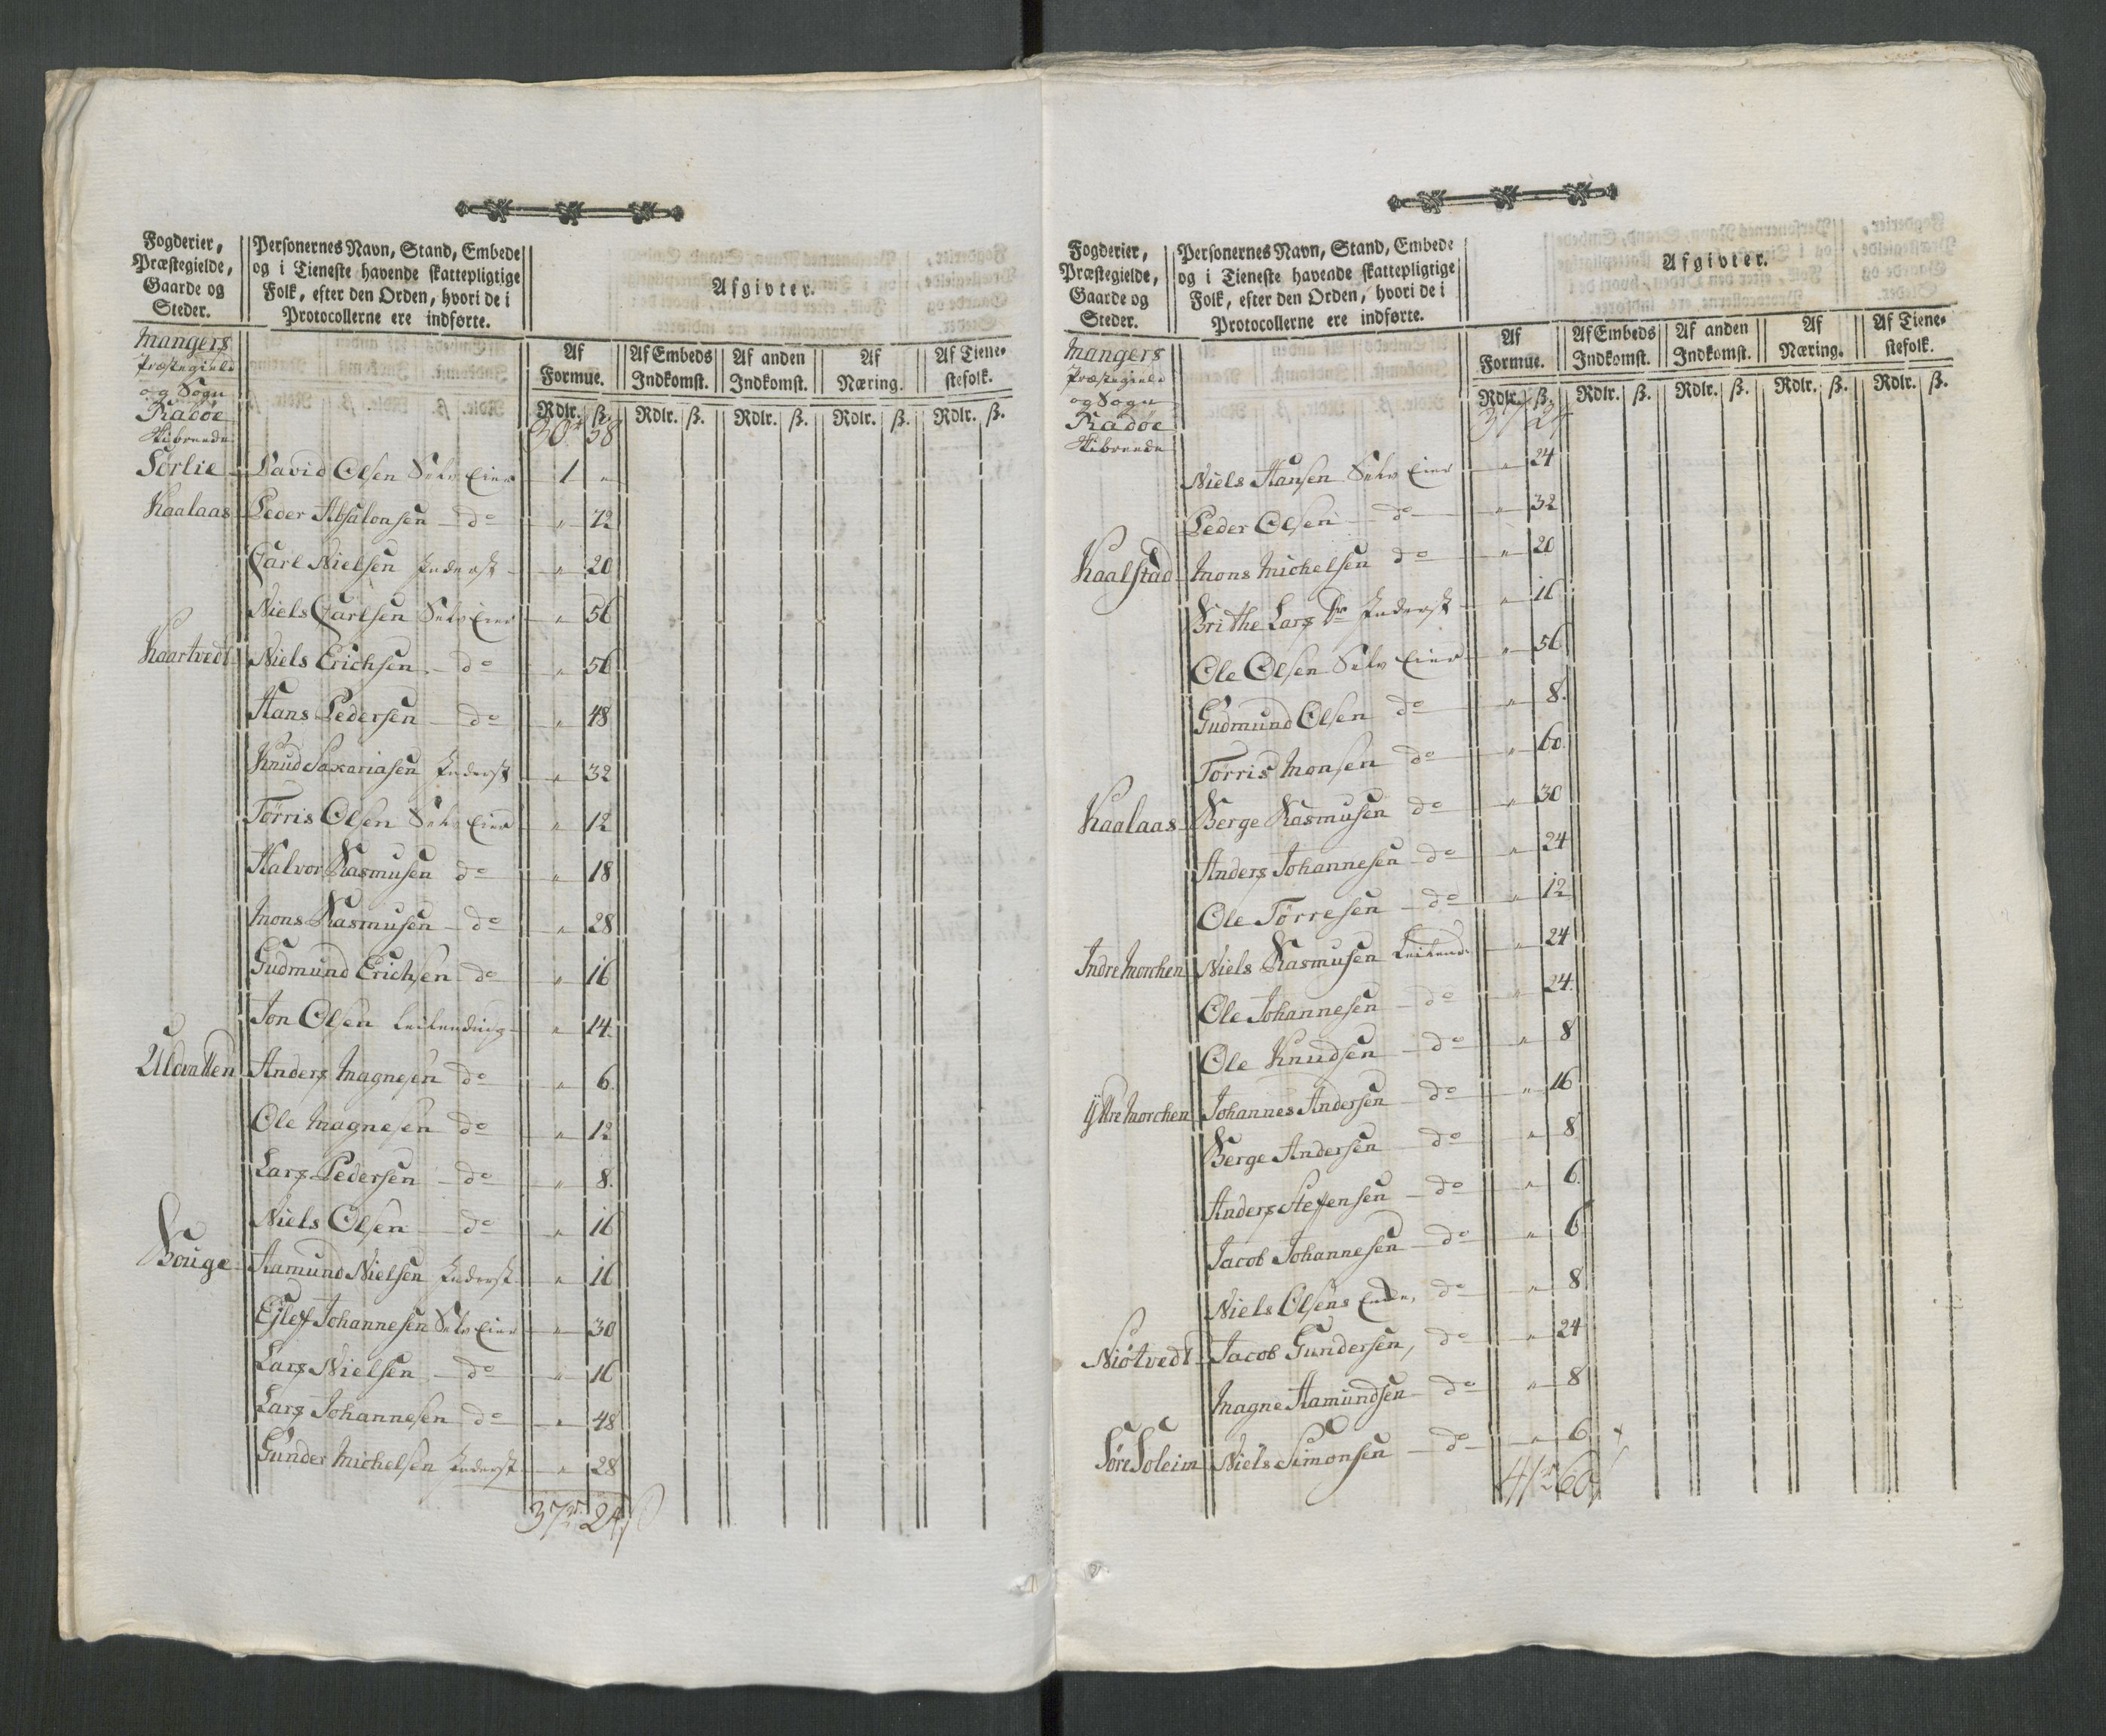 Fogderier, Præstegielde, Gaarde og Steder.
Personernes Navn, Stand, Embede og i Tieneste havende skattepligtige Folk, efter den Orden, hvori de i Protocollerne ere indførte.
Afgivter.
Af Formue. Af Embeds Indkomst. Af anden Indkomst. Af Næring. Af Tienestefolk.
Rdlr. ß. Rdlr. ß. Rdlr. ß. Rdlr. ß. Rdlr. ß.
Mangers
Præstegield
og Sogn
Radøe
Skibreede
30 58
Sørlie David Olsen Selv Eier 1 "
Kaalaas Peder Absalonsen do " 72
Carl Nielsen Inderst " 20
Niels Carlsen Selv Eier " 56
Kaartvedt Niels Erichsen do " 56
Hans Pedersen do " 48
Knud Saxariasen Inderst " 32
Tørris Olsen Selv Eier " 12
Halvor Rasmusen do " 18
Mons Rasmusen do " 28
Gudmund Erichsen do " 16
Jon Olsen Leilending " 14
Ulvatten Anders Magnesen do " 6
Ole Magnesen do " 12
Lars Pedersen do " 8
Niels Olsen do " 16
Bouge Aamund Nielsen Inderst " 16
Ejlef Johannesen Selv Eier " 30
Lars Nielsen do " 16
Lars Johannesen do " 48
Gunder Michelsen Inderst " 28
37 24
Fogderier, Præstegielde, Gaarde og Steder.
Personernes Navn, Stand, Embede og i Tieneste havende skattepligtige Folk, efter den Orden, hvori de i Protocollerne ere indførte.
Afgivter.
Af Formue. Af Embeds Indkomst. Af anden Indkomst. Af Næring. Af Tienestefolk.
Rdlr. ß. Rdlr. ß. Rdlr. ß. Rdlr. ß. Rdlr. ß.
Mangers
Præstegield
og Sogn
Radøe
Skibreede
37 24
Niels Hansen Selv Eier " 24
Peder Olsen do " 32
Kaalstad Mons Michelsen do " 20
Brithe Lars Dr Inderst " 16
Ole Olsen Selv Eier " 56
Gudmund Olsen do " 8
Tørris Monsen do " 60
Kaalaas Berge Rasmusen do " 30
Anders Johannesen do " 24
Ole Tørresen do " 12
Indre Morchen Niels Rasmusen Leilend: " 24
Ole Johannesen do " 24
Ole Knudsen do " 8
Yttre Morchen Johannes Andersen do " 16
Berge Andersen do " 8
Anders Steffensen do " 6
Jacob Johannesen do " 6
Niels Olsens Enke, do " 8
Niøtvedt Jacob Gundersen, do " 24
Magne Aamundsen do " 8
Søre Soleim Niels Simonsen do " 6
41 60